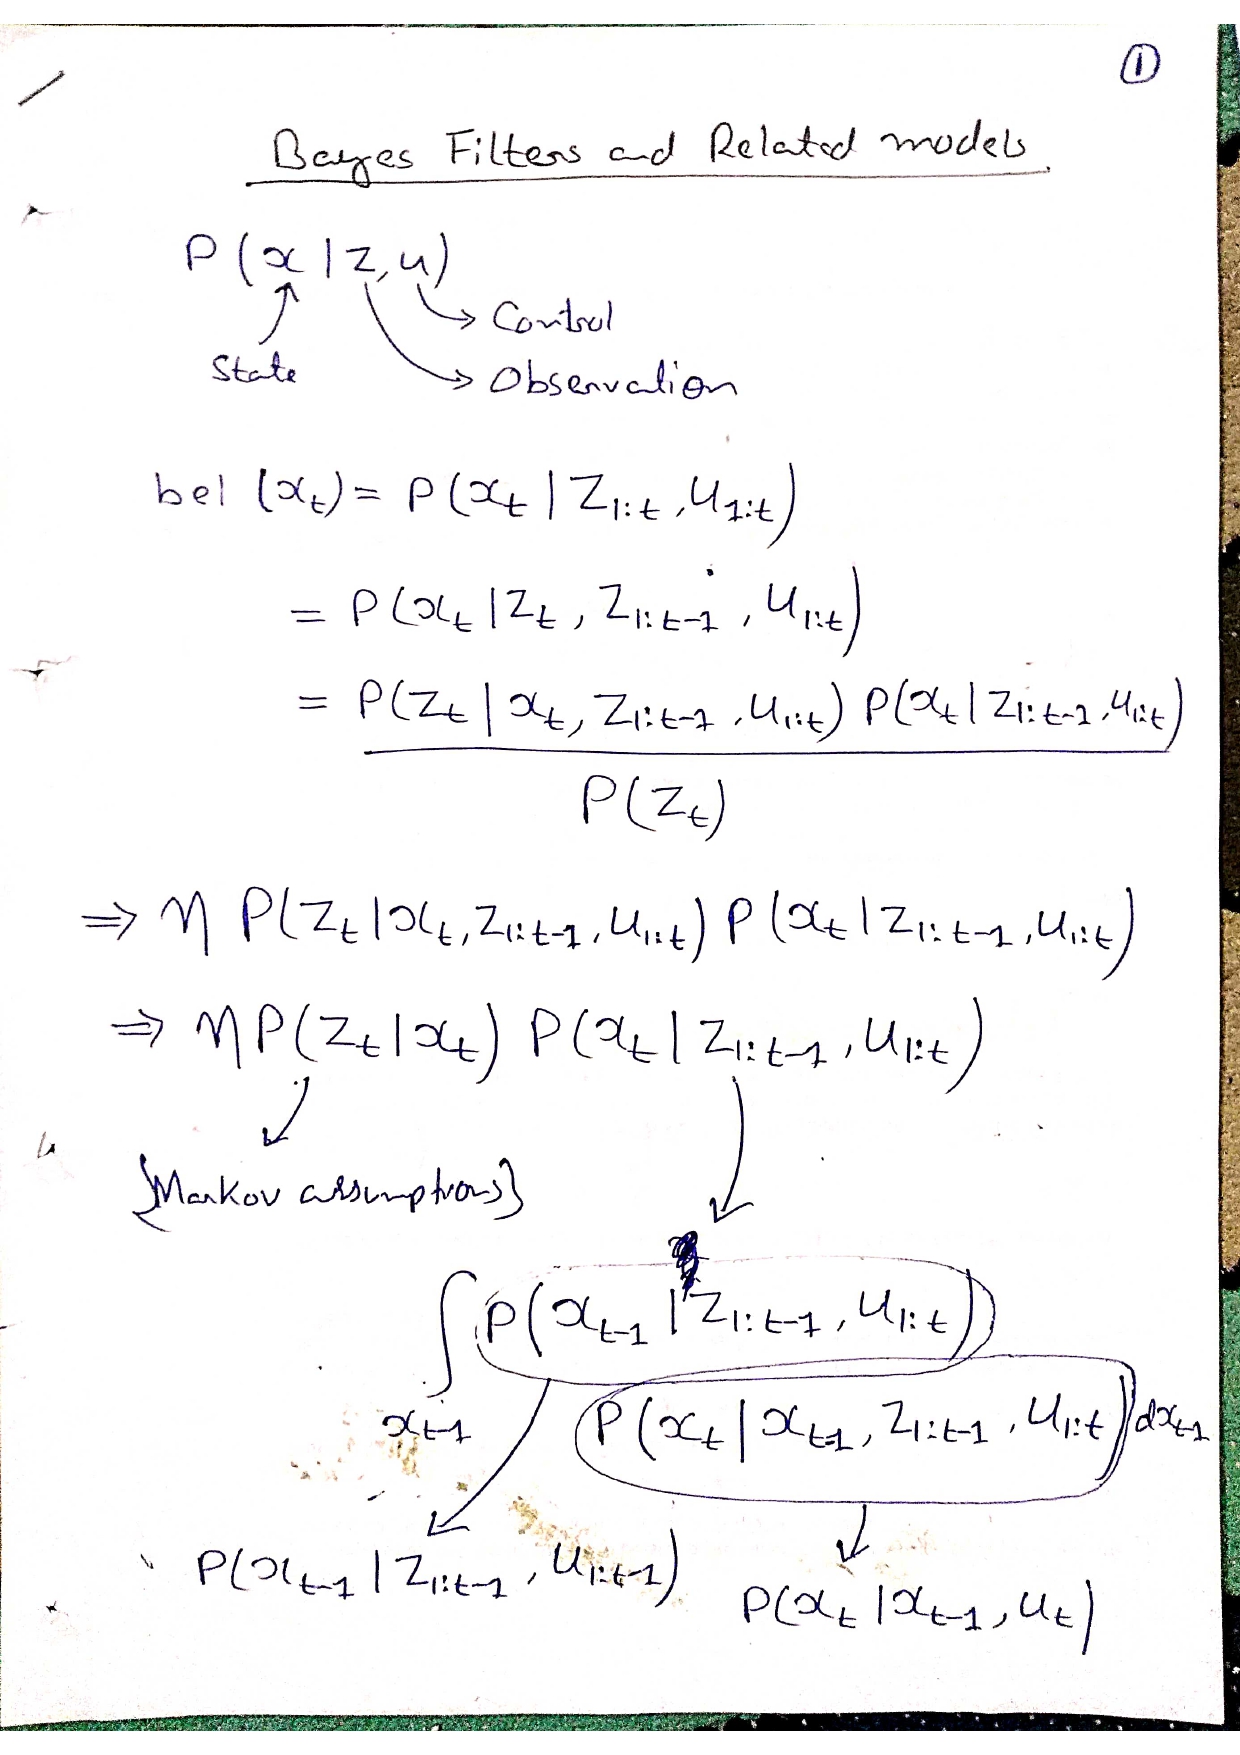 ①
Bayes Filters and Related models.
P(x|z,u)
Control
State
Observation
bel (x_t) = P(x_t | Z_{1:t}, u_{1:t})
= P(x_t | Z_t, Z_{1:t-1}, u_{1:t})
= P(Z_t | x_t, Z_{1:t-1}, u_{1:t}) P(x_t | Z_{1:t-1}, u_{1:t})
P(Z_t)
⇒ η P(Z_t | x_t, Z_{1:t-1}, u_{1:t}) P(x_t | Z_{1:t-1}, u_{1:t})
⇒ η P(Z_t | x_t) P(x_t | Z_{1:t-1}, u_{1:t})
{Markov assumptions}
∫ P(x_{t-1} | Z_{1:t-1}, u_{1:t})
x_{t-1} P(x_t | x_{t-1}, Z_{1:t-1}, u_{1:t}) dx_{t-1}
P(x_{t-1} | Z_{1:t-1}, u_{1:t-1})
P(x_t | x_{t-1}, u_t)